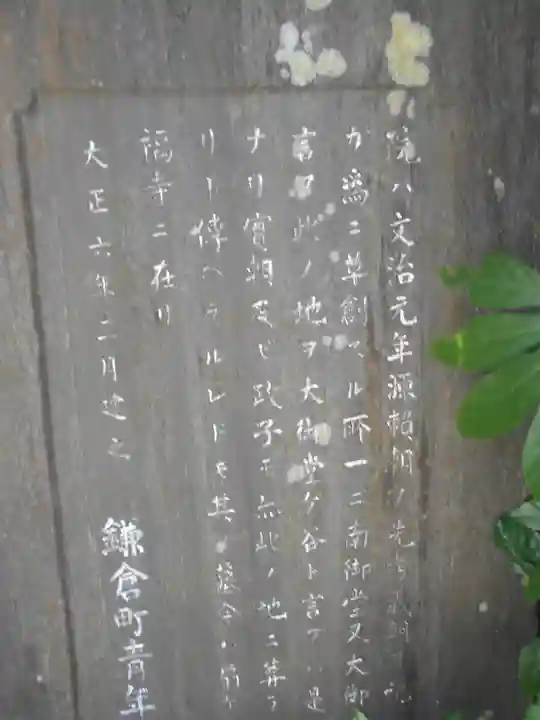 院ハ文治元年源頼朝ノ
ガ為ニ草創スル所一ニ南御堂又大御
言フ此ノ地ヲ大御堂ケ谷ト言フハ是
ナリ實朝及ビ政子モ亦此ノ地ニ葬ラ
リト傳ヘラルレドモ其ノ墓今ハ
福寺ニ在リ
大正六年二月建之 鎌倉町青年